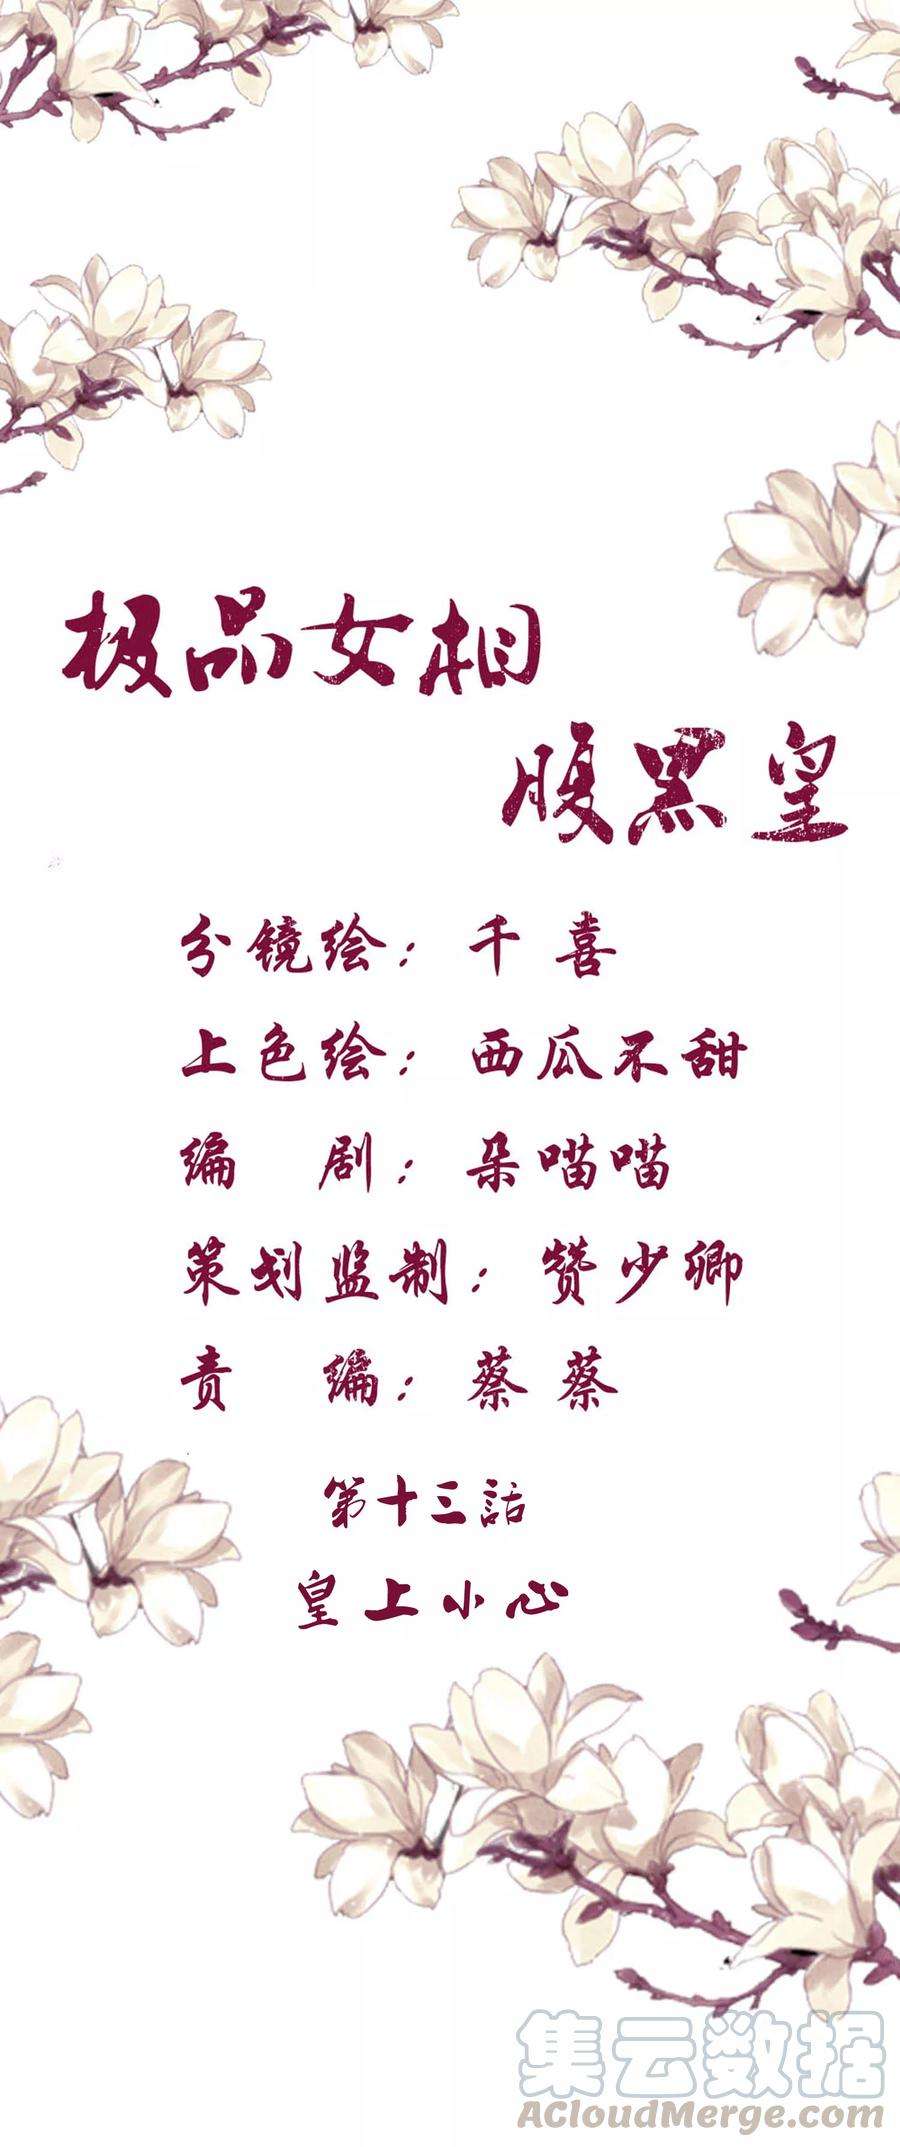 极品女相
腹黑皇
分镜绘：千喜
上色绘：西瓜不甜
编剧：朵喵喵
策划监制：赞少卿
责编：蔡蔡
第十三話
皇上小心
集云数据
ACloudMerge.com